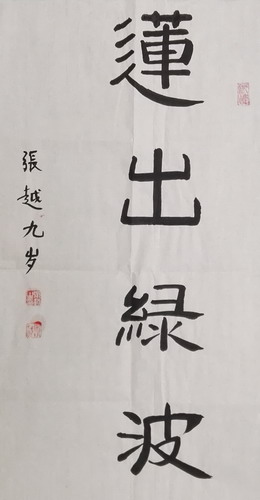 蓮出緑波
張越九岁